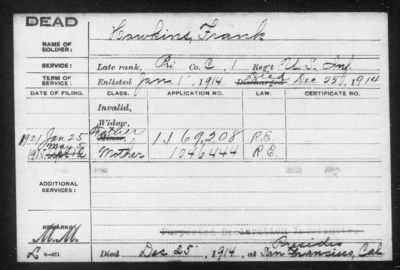 DEAD
Hawkins, Frank
NAME OF
SOLDIER:
SERVICE: Late rank, Pri Co. C, 1 Reg't U.S. Inf.
TERM OF
SERVICE: Enlisted Jan 1, 1914 Died Discharged Dec 25, 1914
DATE OF FILING. CLASS. APPLICATION NO. LAW. CERTIFICATE NO.
Invalid,
Widow,
1921 Jan 25 Father 1169,208 R.E.
1915 May 5 Mother 1046444 R.E.
ADDITIONAL
SERVICES:
REMARKS
M.M. Presidio
L 6-421 Died Dec 25, 1914, at San Francisco, Cal